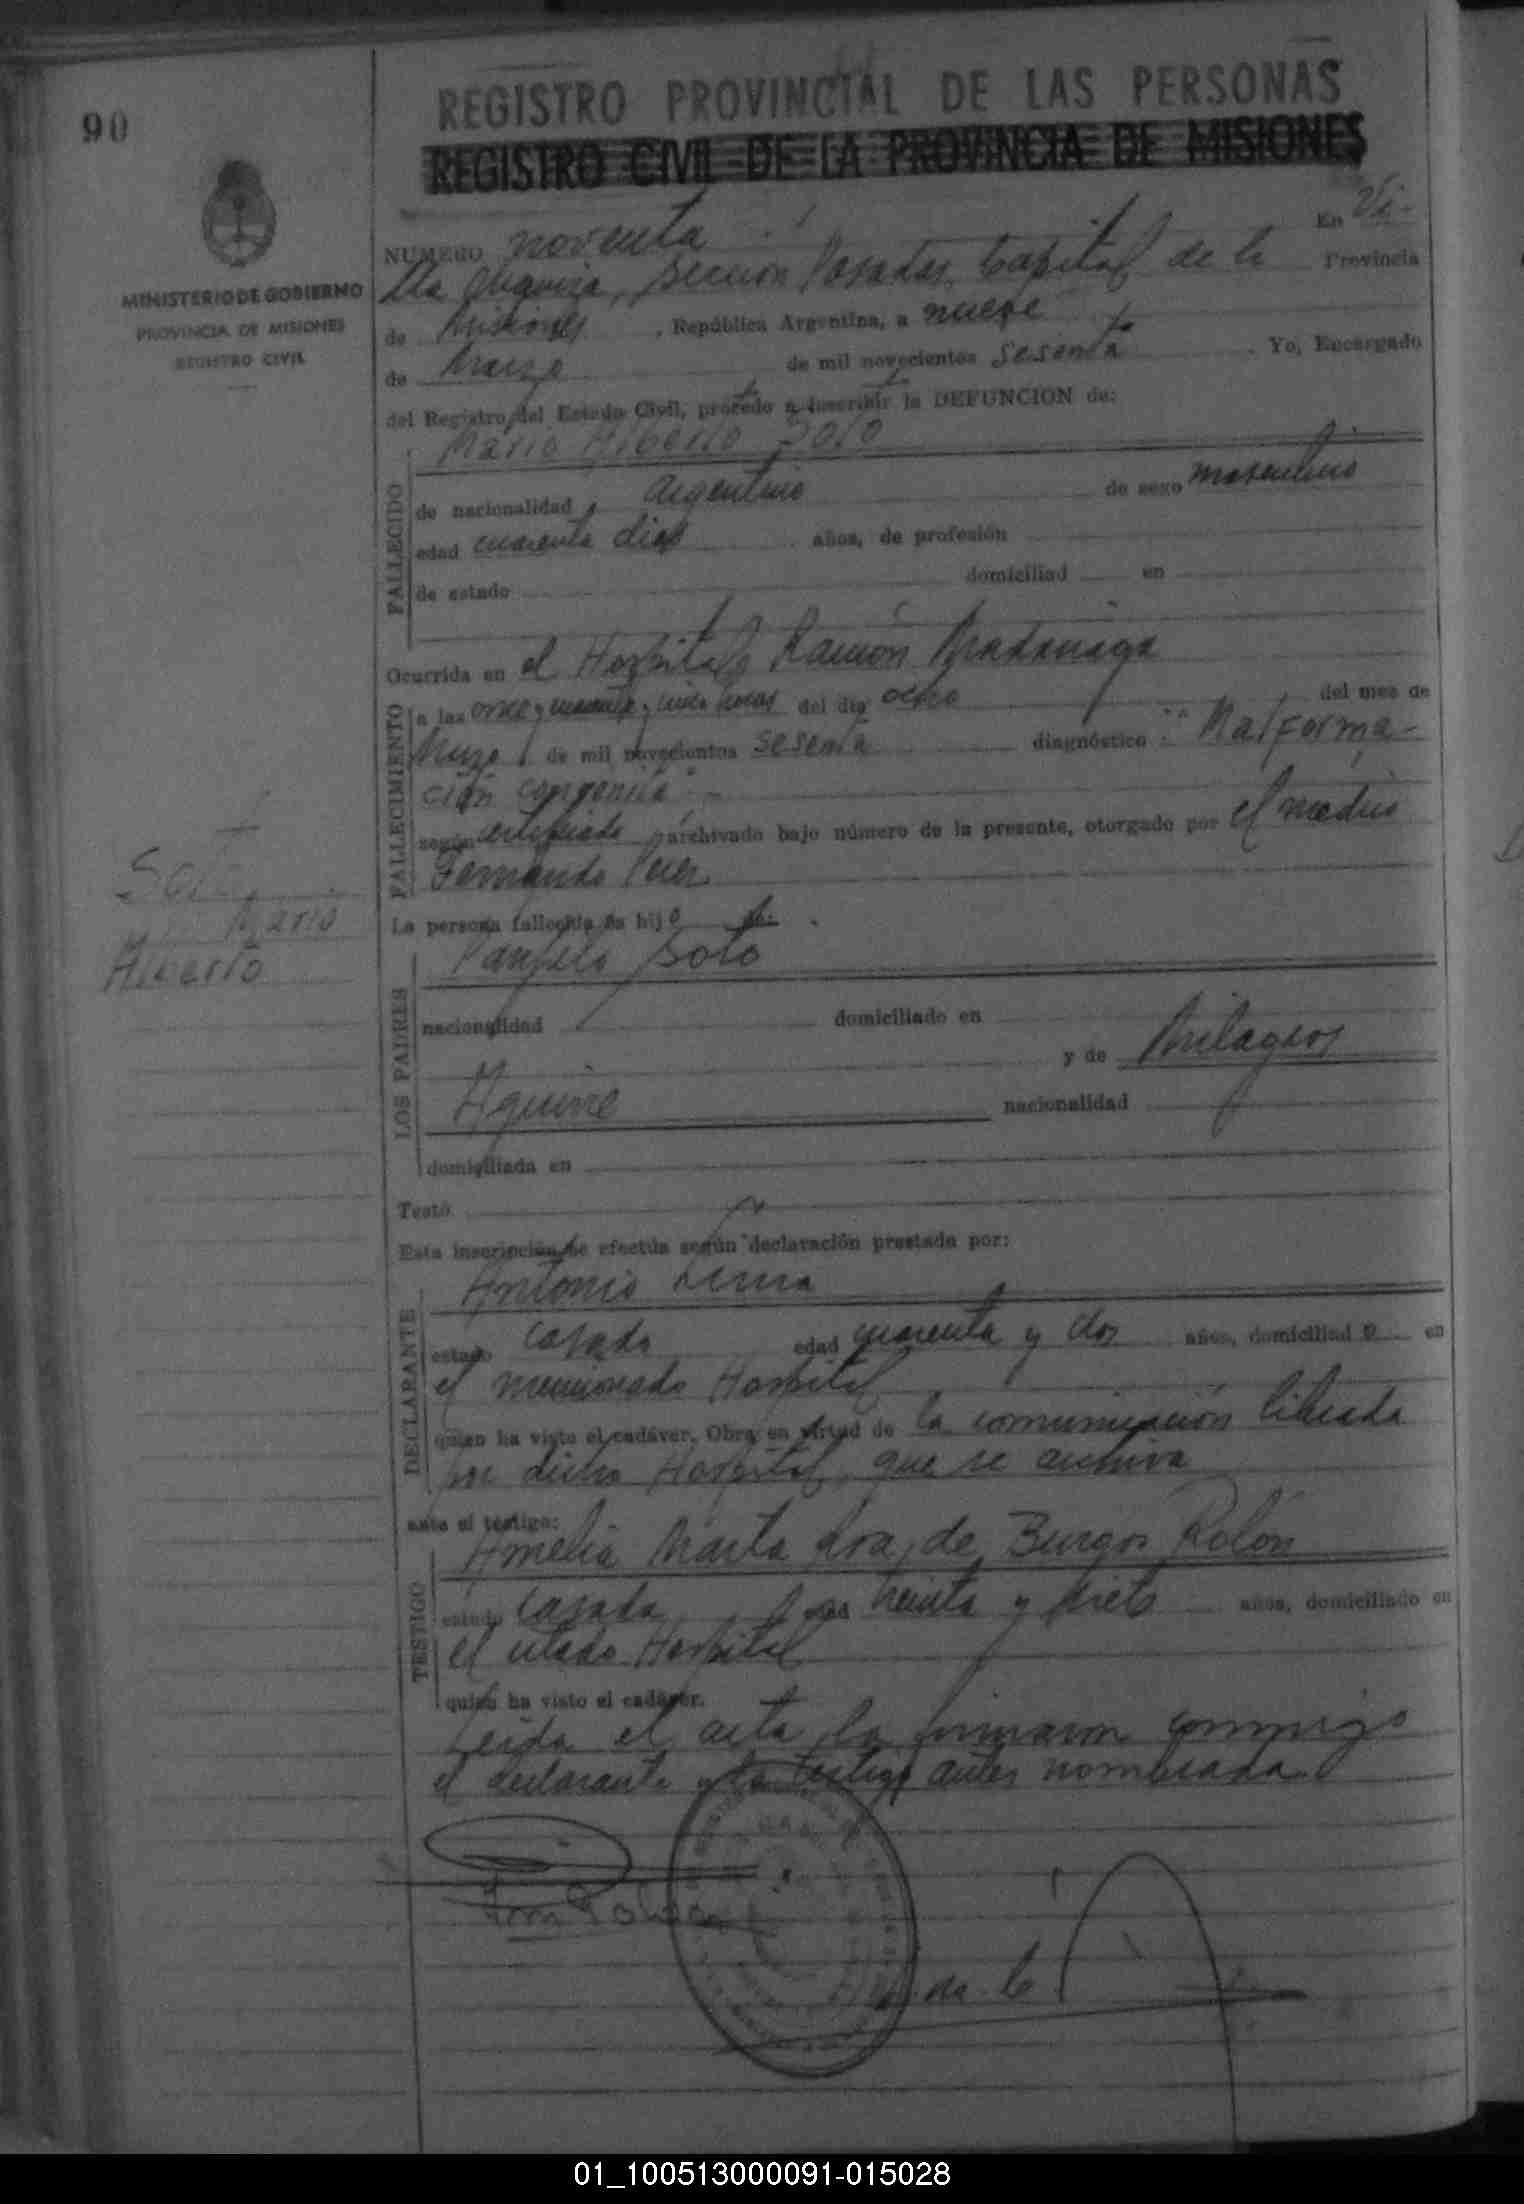 90
REGISTRO PROVINCIAL DE LAS PERSONAS
REGISTRO CIVIL DE LA PROVINCIA DE MISIONES
MINISTERIO DE GOBIERNO
PROVINCIA DE MISIONES
REGISTRO CIVIL
NUMERO noventa En Vi-
lla Urquiza, sección Posadas Capital de la Provincia
de Misiones, República Argentina, a nueve
de Marzo de mil novecientos sesenta. Yo, Encargado
del Registro del Estado Civil, procedo a inscribir la DEFUNCION de:
Mario Alberto Soto
FALLECIDO
de nacionalidad argentino de sexo masculino
edad cuarenta dias años, de profesión
de estado domiciliad en
Ocurrida en el Hospital Ramón Madariaga
FALLECIMIENTO
a las once y cuarenta y cinco horas del día ocho del mes de
Marzo de mil novecientos sesenta diagnóstico: "Malforma-
ción congenita"
según certificado archivado bajo número de la presente, otorgado por el medico
Fernando
Soto
Mario
Alberto
La persona fallecida es hijo de:
LOS PADRES
Panfilo Soto
nacionalidad domiciliado en
y de Milagros
Aguirre nacionalidad
domiciliada en
Testó
Esta inscripción se efectúa según declaración prestada por:
DECLARANTE
Antonio
estado casado edad cuarenta y dos años, domiciliad o en
el mencionado Hospital
quien ha visto el cadáver. Obra en virtud de la comunicación librada
por dicho Hospital, que se archiva
ante el testigo:
TESTIGO
Amelia Marta de Burgos Rolón
estado casada edad treinta y siete años, domiciliado en
el citado Hospital
quien ha visto el cadáver.
Leida el acta la firmaron conmigo
el declarante y la testigo antes nombrada
01_100513000091-015028